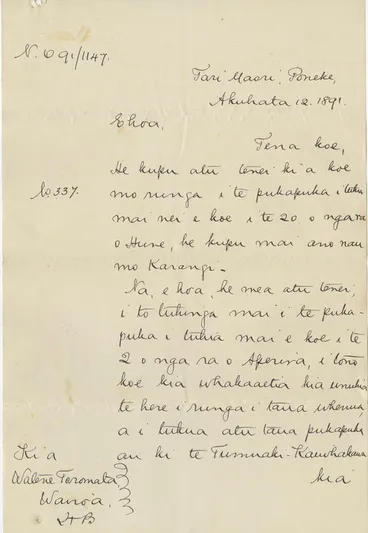 N. O 91/1147.
Tari Maori, Poneke,
Akuhata 12. 1891.
E hoa,
Tena koe,
He kupu atu tenei ki a koe
No 337.
mo runga i te pukapuka i tuku
mai nei e koe i te 20 o nga ra
o Hune, he kupu mai ano nau
mo Karangi.
Na, e hoa, he mea atu tenei,
i to tuhinga mai i te puka-
puka i tukua mai e koe i te
2 o nga ra o Aperira, i tono
koe kia whakaaetia kia unuhia
te here i runga i taua whenua,
a i tukua atu taua pukapuka
Ki a
an ki te Tumuaki-Kaiwhakawa
Watene Teromata
kia
Wairoa,
H B